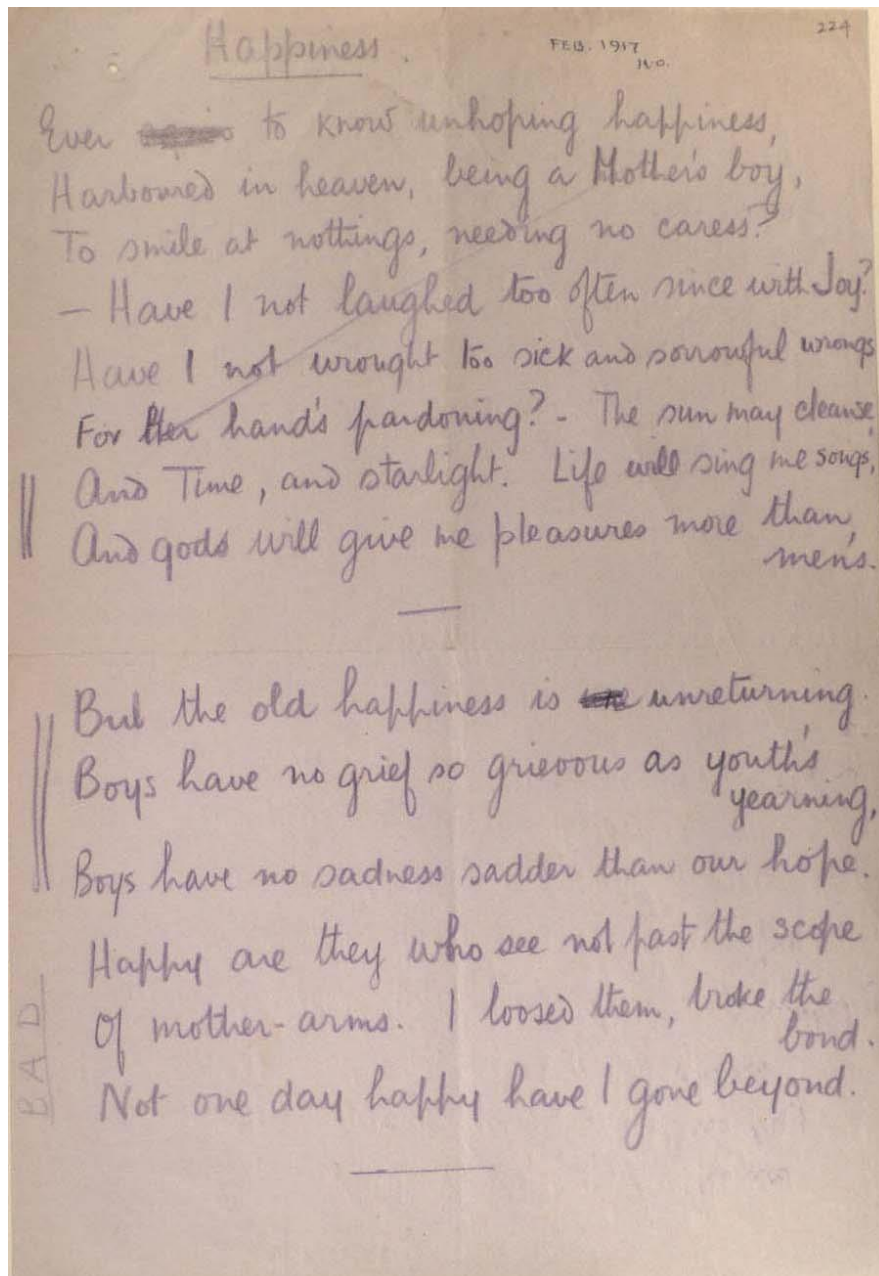 224
Happiness.
FEB. 1917
Ever to know unhoping happiness,
Harboured in heaven, being a Mother's boy,
To smile at nothings, needing no caress?
— Have I not laughed too often since with Joy?
Have I not wrought too sick and sorrowful wrongs
For her hand's pardoning? - The sun may cleanse,
And Time, and starlight. Life will sing me songs,
And gods will give me pleasures more than
men's.
But the old happiness is unreturning.
Boys have no grief so grievous as youth's
yearning,
Boys have no sadness sadder than our hope.
Happy are they who see not past the scope
Of mother-arms. I loosed them, broke the
bond.
Not one day happy have I gone beyond.
BAD